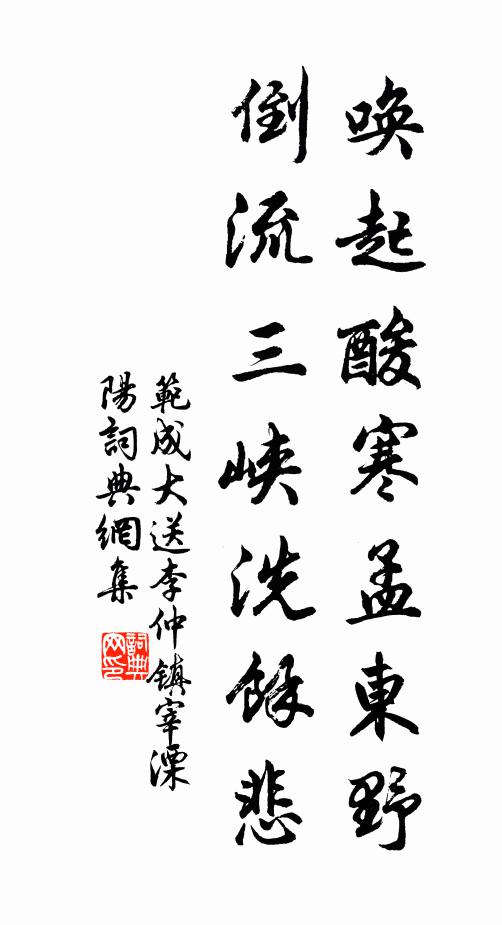 喚起酸寒孟東野
倒流三峽洗餘悲
範成大送李仲鎮宰溧
陽詞典網集
詞典
网印